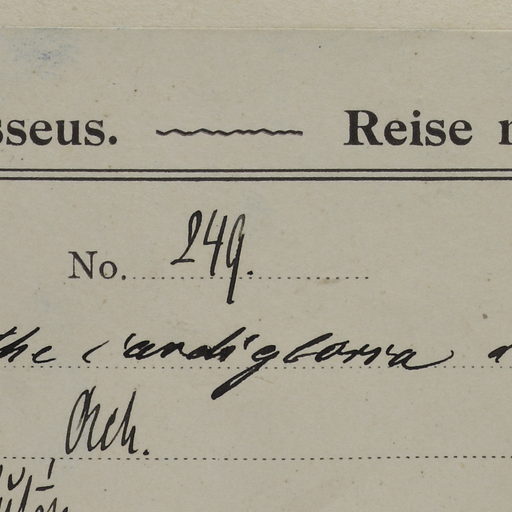 sseus. Reise
No. 249.
the candiglossa
Orch.